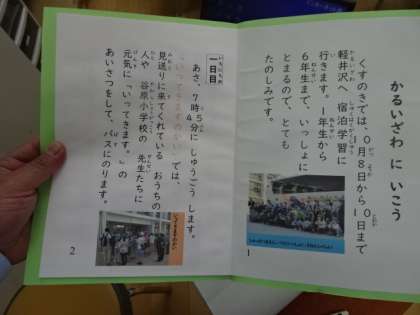 かるいざわ に いこう
くすのきでは、10月8日から10日まで
軽井沢へ 宿泊学習に
行きます。1年生から
6年生まで、いっしょに
とまるので、とても
たのしみです。
1
一日目
あさ、7時45分に しゅうごうします。
「いってきますのかい」では、
見送りに来てくれている おうちの
人や 谷原小学校の 先生たちに
元気に「いってきます。」の
あいさつをして、バスにのります。
2